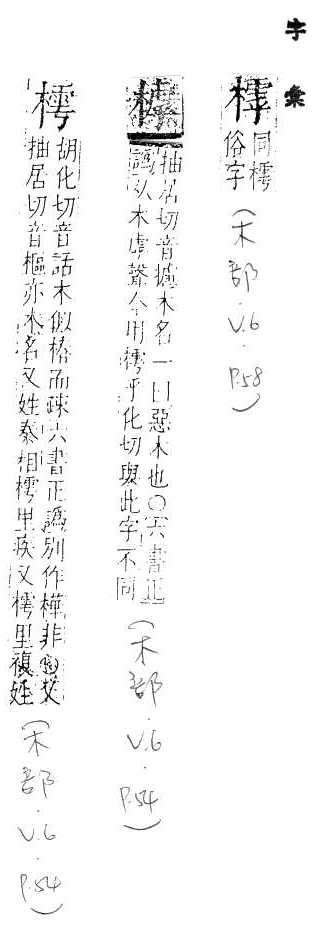 字彙
同樗
俗字
(木部.V.6.P.58)
抽居切音攄木名一曰惡木也○六書正
譌从木虖聲今用樗乎化切與此字不同
(木部.V.6.P.54)
樗
胡化切音話木似椿而疎六書正譌別作樺非又
抽居切音樞亦木名又姓秦相樗里疾又樗里複姓
(木部.V.6.P.54)